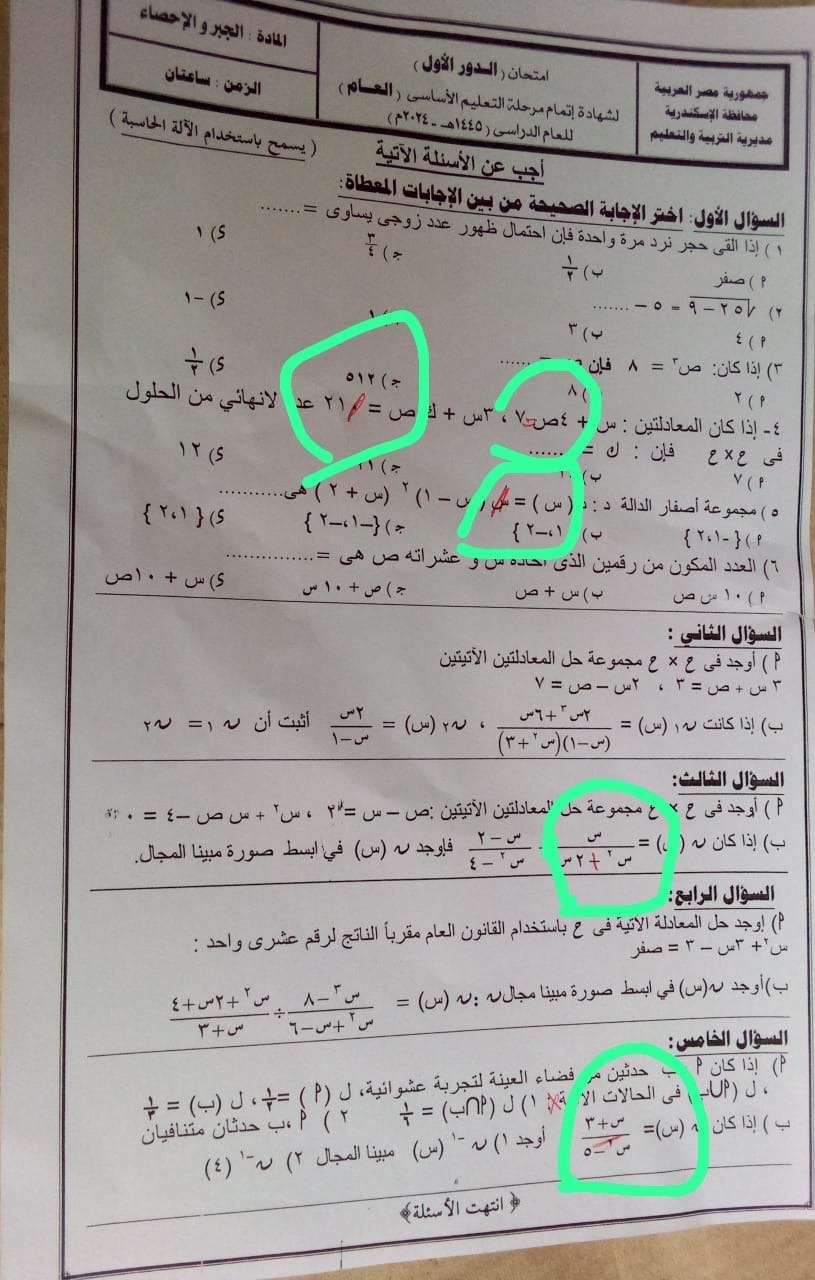 جمهورية مصر العربية
محافظة الإسكندرية
مديرية التربية والتعليم
امتحان ( الدور الأول )
لشهادة إتمام مرحلة التعليم الأساسى ( العام )
للعام الدراسى ( ١٤٤٥هـ - ٢٠٢٤م )
المادة : الجبر والإحصاء
الزمن : ساعتان
أجب عن الأسئلة الآتية
( يسمح باستخدام الآلة الحاسبة )
السؤال الأول: اختر الإجابة الصحيحة من بين الإجابات المعطاة:
١) إذا القى حجر نرد مرة واحدة فإن احتمال ظهور عدد زوجى يساوى = .......
٢) صفر ب) ١/٢ ج) ٣/٤ د) ١
٢) √٢٥ - ٩ = ٥ - .......
٢) ٤ ب) ٣ ج) ١ د) -١
٣) إذا كان: ص٣ = ٨ فإن ص = .......
٢) ٢ ب) ٨ ج) ٥١٢ د) ١/٢
٤- إذا كان المعادلتين : س + ٤ص = ٧ ، ٣س + ك ص = ٢١ عدد لانهائي من الحلول
فى ح × ح فإن : ك = .......
٢) ٧ د) ١٢
٥) مجموعة أصفار الدالة د : د ( س ) = س (س - ١)٢ (س + ٢ ) هى..........
٢) {-٢،١} ب) {١،-٢} ج) {-١،-٢} د) {٢،١}
٦) العدد المكون من رقمين الذى احاده س و عشراته ص هى = ..............
٢) ١٠ س ص ب) س + ص ج) ص + ١٠ س د) س + ١٠ص
السؤال الثاني :
٢) أوجد فى ح × ح مجموعة حل المعادلتين الآتيتين
٣ س + ص = ٣ ، ٢س - ص = ٧
ب) إذا كانت ن١ (س) = ٢س٣ + ٦س / (س-١)(س٢ + ٣) ، ن٢ (س) = ٢س / س-١ أثبت أن ن١ = ن٢
السؤال الثالث:
٢) أوجد فى ح × ح مجموعة حل المعادلتين الآتيتين :ص - س = ٣ ، س٢ + س ص -٤ = ٠
ب) إذا كان ن (س) = س / س٢ + ٢س س - ٢ / س٢ - ٤ فإوجد ن (س) في ابسط صورة مبينا المجال.
السؤال الرابع:
٢) إوجد حل المعادلة الآتية فى ح باستخدام القانون العام مقرباً الناتج لرقم عشرى واحد :
س٢ + ٣س - ٣ = صفر
ب)أوجد ن(س) في ابسط صورة مبينا مجال ن : ن (س) = س٣ - ٨ / س٢ + س - ٦ ÷ س٢ + ٢س + ٤ / س + ٣
السؤال الخامس:
٢) إذا كان ٢ ، ب حدثين من فضاء العينة لتجربة عشوائية، ل (٢) = ١/٢ ، ل (ب) = ١/٣
، ل (٢∪ب) فى الحالات الآتية: ١) ل (٢∩ب) = ١/٦ ٢) ٢ ،ب حدثان متنافيان
ب ) إذا كان ن (س)= س+٣ / س٢ - ٥ أوجد ١) ن-١ (س) مبينا المجال ٢) ن-١ (٤)
﴿ انتهت الأسئلة ﴾